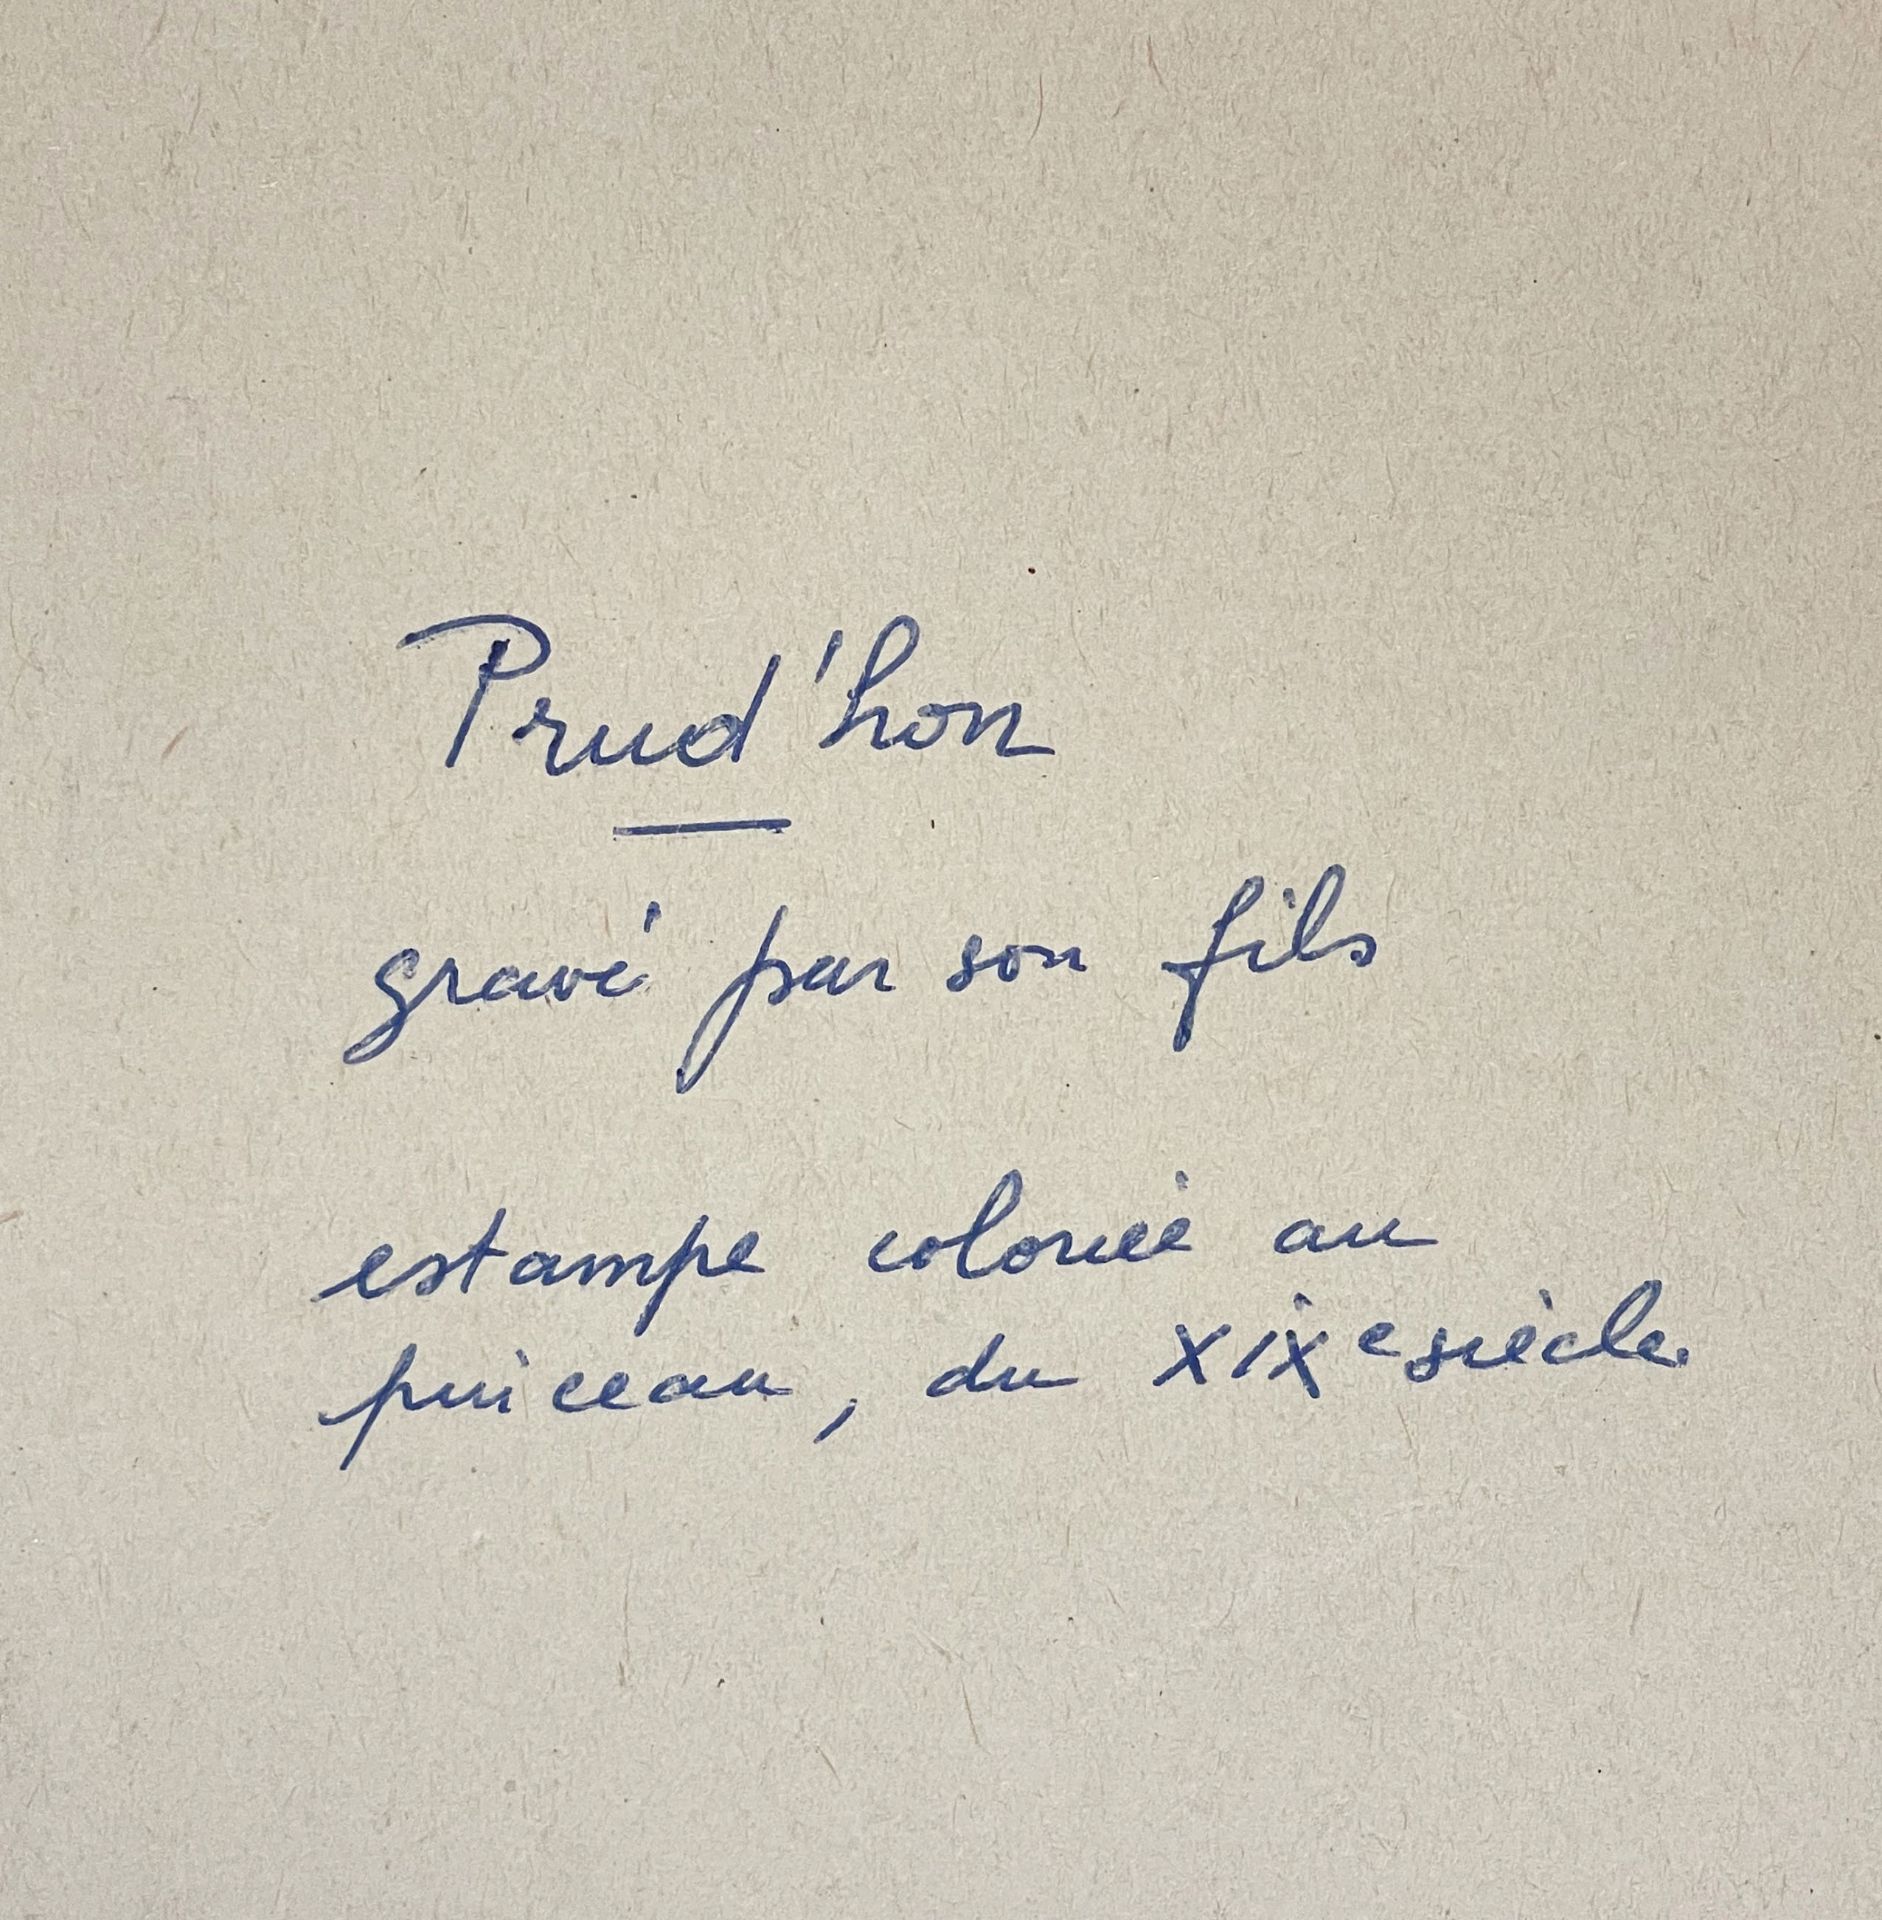 Prud'hon
gravé par son fils
estampe coloriée au
pinceau, du XIXe siècle.